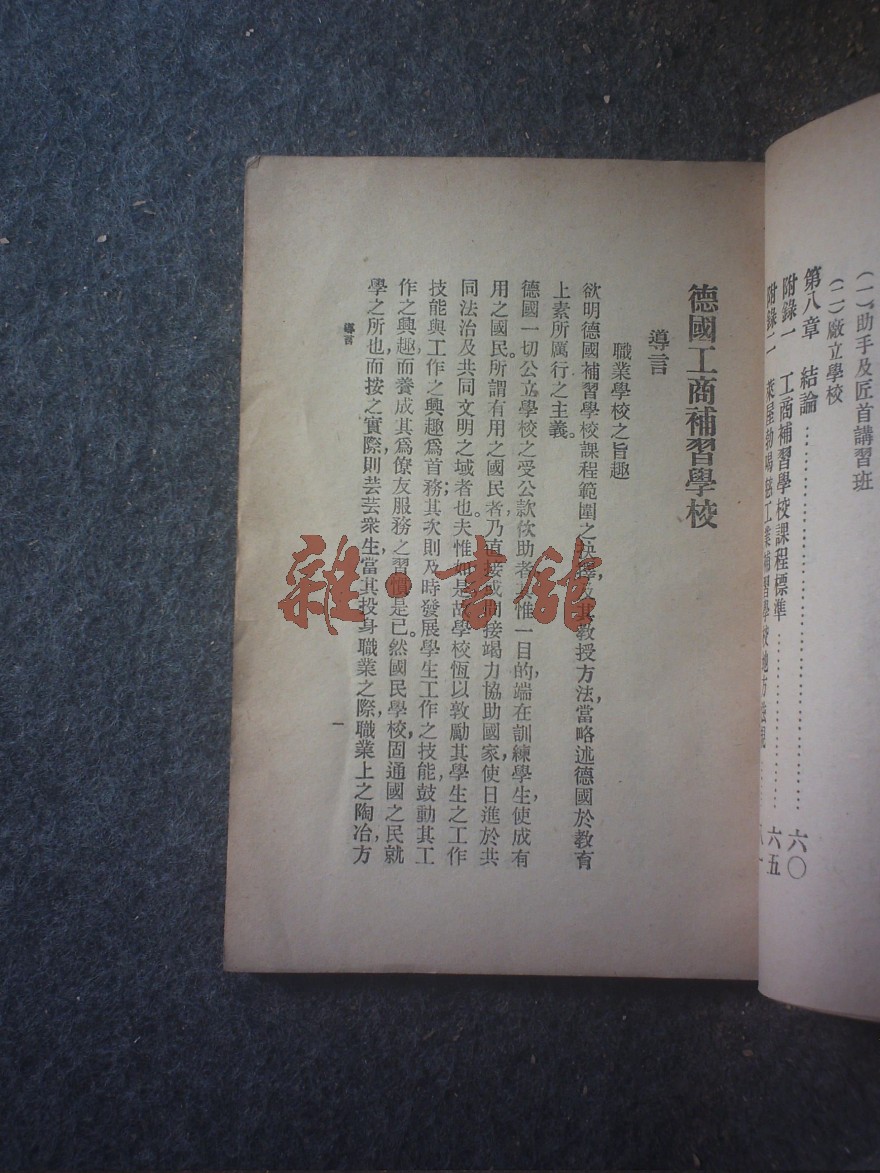 (一)助手及匠首講習班
(二)廠立學校
第八章 結論 六〇
附錄一 工商補習學校課程標準 六五
附錄二
德國工商補習學校
導言
職業學校之旨趣
欲明德國補習學校課程範圍之抉擇,及其教授方法,當略述德國於教育
上素所厲行之主義。
德國一切公立學校之受公款佽助者,其惟一目的,端在訓練學生,使成有
用之國民。所謂有用之國民者,乃直接或間接竭力協助國家,使日進於共
同法治及共同文明之域者也。夫惟如是,故學校恆以敦勵其學生之工作
技能與工作之興趣爲首務;其次則及時發展學生工作之技能,鼓動其工
作之興趣,而養成其爲僚友服務之習慣是已。然國民學校,固通國之民就
學之所也,而按之實際,則芸芸衆生,當其投身職業之際,職業上之陶冶,方
導言
一
雜·書館